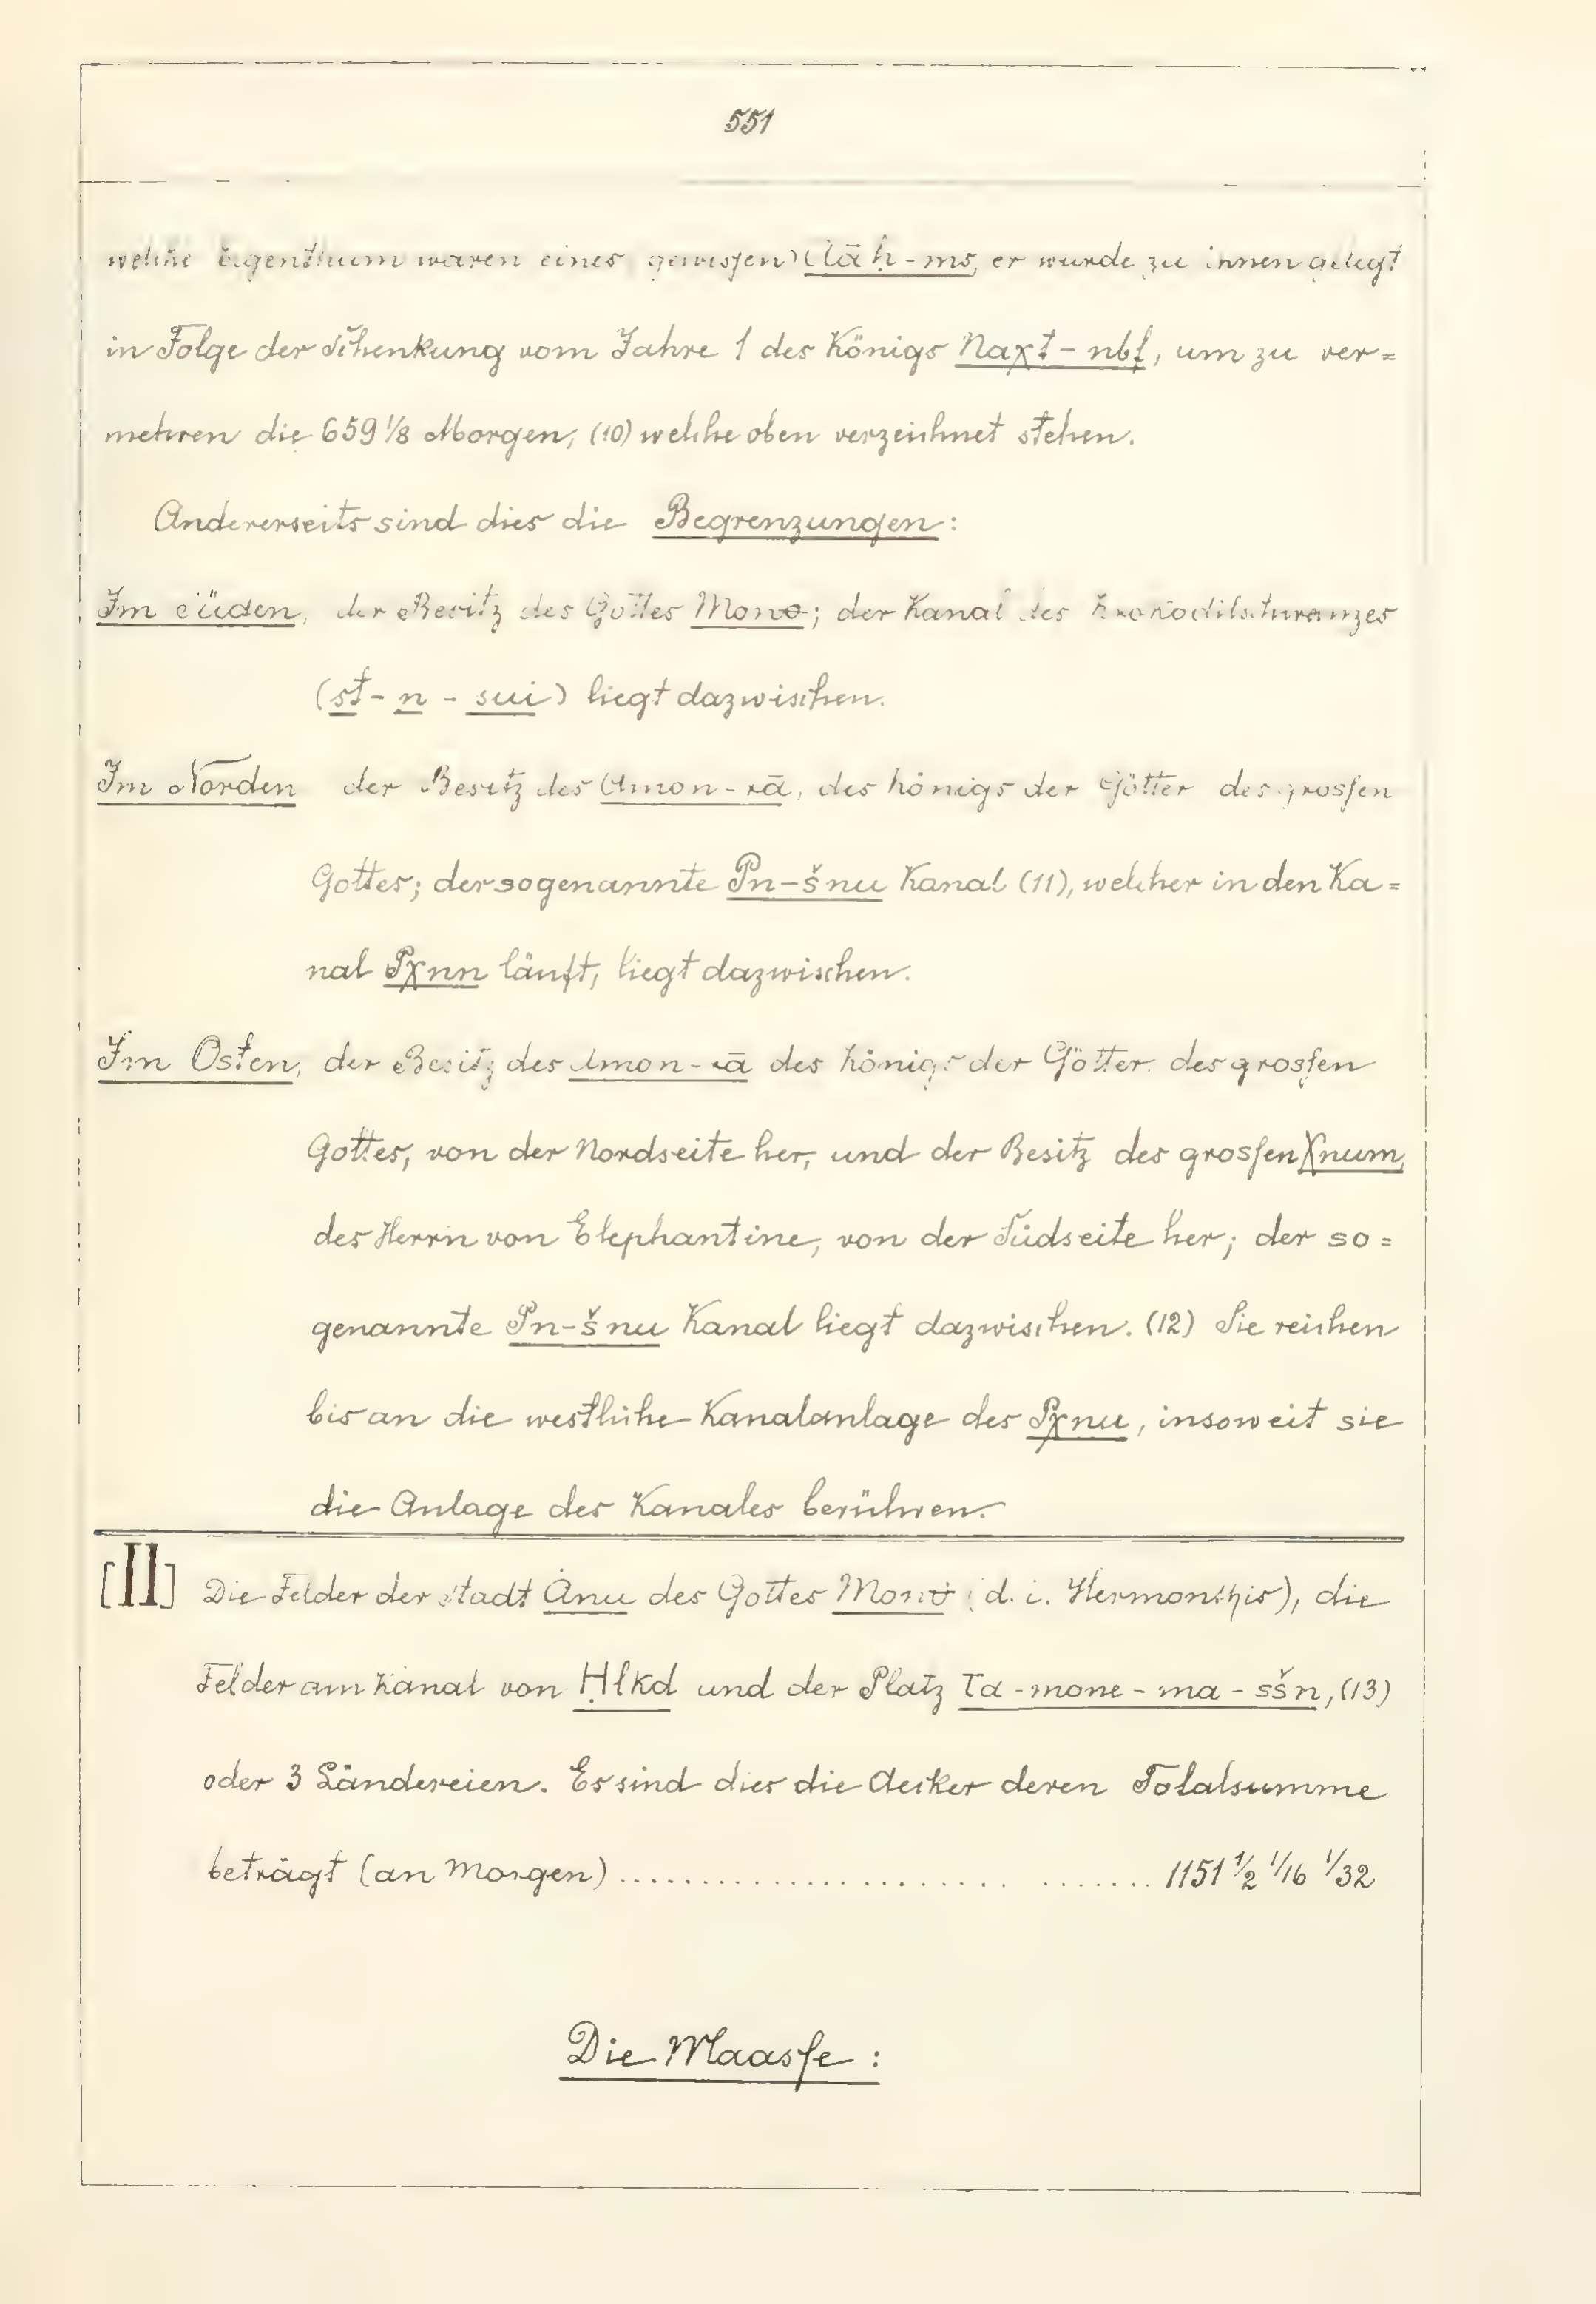 551
welche Eigenthum waren eines gewissen Aāḥ-ms, er wurde zu ihnen gelegt
in Folge der Schenkung vom Jahre 1 des Königs Naχt-nbf, um zu ver=
mehren die 659 1/8 Morgen, (10) welche oben verzeichnet stehen.
Andererseits sind dies die Begrenzungen:
Im Süden, der Besitz des Gottes Monθ; der Kanal des Krokodilschwanzes
(st-n-sui) liegt dazwischen.
Im Norden der Besitz des Amon-rā, des Königs der Götter des grossen
Gottes; der sogenannte Pn-šnu Kanal (11), welcher in den Ka=
nal Pχnn läuft, liegt dazwischen.
Im Osten, der Besitz des Amon-rā des Königs der Götter des grossen
Gottes, von der Nordseite her, und der Besitz des grossen Χnum,
des Herrn von Elephantine, von der Südseite her; der so=
genannte Pn-šnu Kanal liegt dazwischen. (12) Sie reichen
bis an die westliche Kanalanlage des Pχnu, insoweit sie
die Anlage des Kanales berühren.
[II] Die Felder der Stadt Anu des Gottes Monθ (d. i. Hermonthis), die
Felder am Kanal von Ḥlkd und der Platz Ta-mone-ma-sšn, (13)
oder 3 Ländereien. Es sind dies die Aecker deren Totalsumme
beträgt (an Morgen) .............................. 1151 1/2 1/16 1/32
Die Maasse: